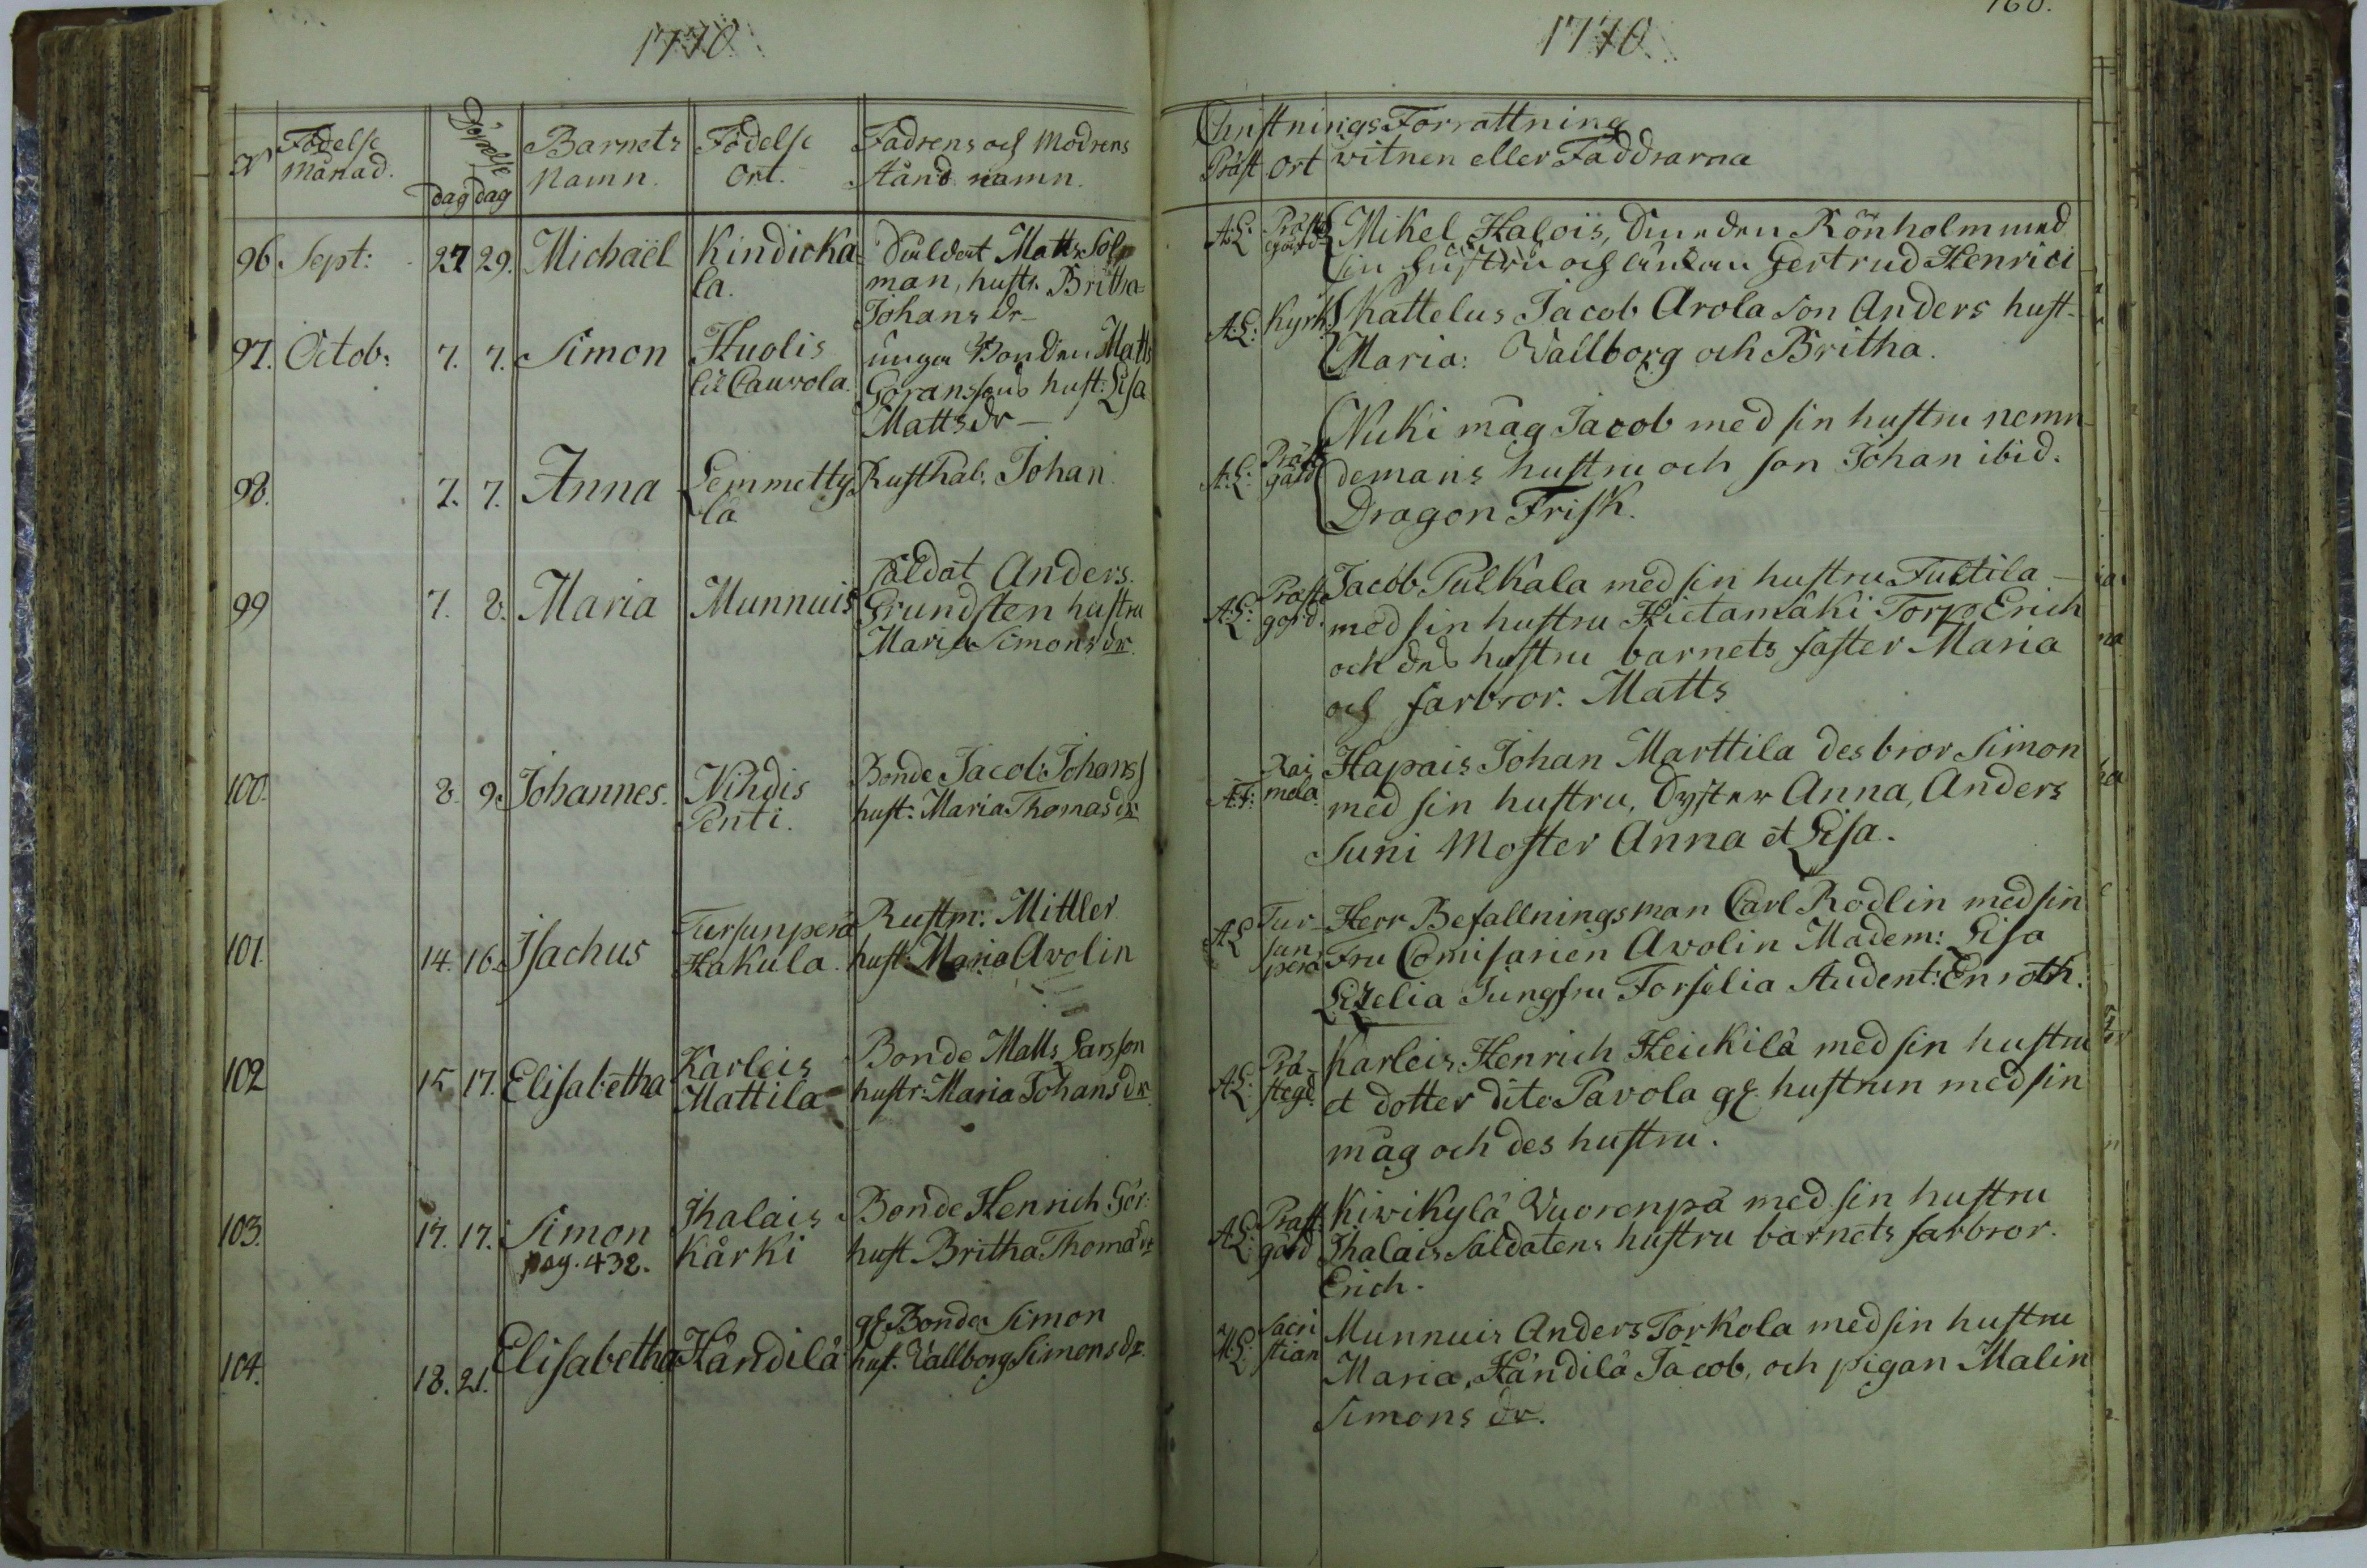 1770
No Födelse Månad. dag Döpelse dag Barnets Namn. Födelse Ort. Fadrens och Modrens Stånd namn.
96. Sept: 27 29. Michaël Kindickala. Matts Sol
man, hustr. Britha
Johans Dr
97. Octob: 7. 7. Simon Huolis unga Bonden Matts
Cauvola. Göranssons hust: Lisa
Matts dr
98. 7. 7. Anna Lemmetty Rusthål: Johan
la
99 7. 8. Maria Munnuis Såldat Anders
Grundsten hustru
Maria Simons dr.
100. 8. 9. Johannes. Nihdis Bonde Jacob Johans
Penti. hust: Maria Thomas dr
101. 14. 16. Isachus Tursunperä Rustm: Mittler
Hakula. hust: Maria Avolin
102 15 17. Elisabetha Karleis Bonde Matts Larsson
Mattila hustr: Maria Johans dr.
103. 17. 17. Simon Ihalais Bonde Henrich Gör:
pag. 432. Kärki hust Britha Thoma dr
104. 18. 21. Elisabetha Händilä gl. Bonde Simon
hust. Vallborg Simons dr.
1770
160.
Christnings Forrattning
Präst Ort witnen eller Faddrarna
A:L: Präst gård Mikel Halois, Rönholm med
sin hustru och änkan Gertrud Henrici
A:L: Kyrk Kattelus Jacob Arola son Anders hust
Maria: Vallborg och Britha.
Nuki måg Jacob med sin hustru nemn
A:L: Präst gård demans hustru och son Johan ibid.
Dragon Frisk.
A:L: Präst gord. Jacob Pulkala med sin hustru Tultila
med sin hustru Hietamäki Torp Erich
och des hustru barnets faster Maria
och farbror. Matts
A:F: Rai mela Hapais Johan Marttila des bror Simon
med sin hustru, Dyster Anna, Anders
Suni Moster Anna et Lisa.
A:L Tur sun perä Herr Befallningsman Carl Rodlin med sin
Fru Comisarien Avolin Madem: Lisa
Lizelia Jungfru Forselia Student: Enroth.
A:L: Prä stegd: Karleis Henrich Heickilä med sin hustru
et dotter dito Pavola gl. hustrun med sin
måg och des hustru.
A:L: Präst gård Kiwikylä Vuorenpä med sin hustru
Ihalais Såldatens hustru barnets farbror.
Erich.
M:L: Sacri stian Munnuis Anders Torkola med sin hustru
Maria, Händilä Jacob, och pigan Malin
Simons dr.